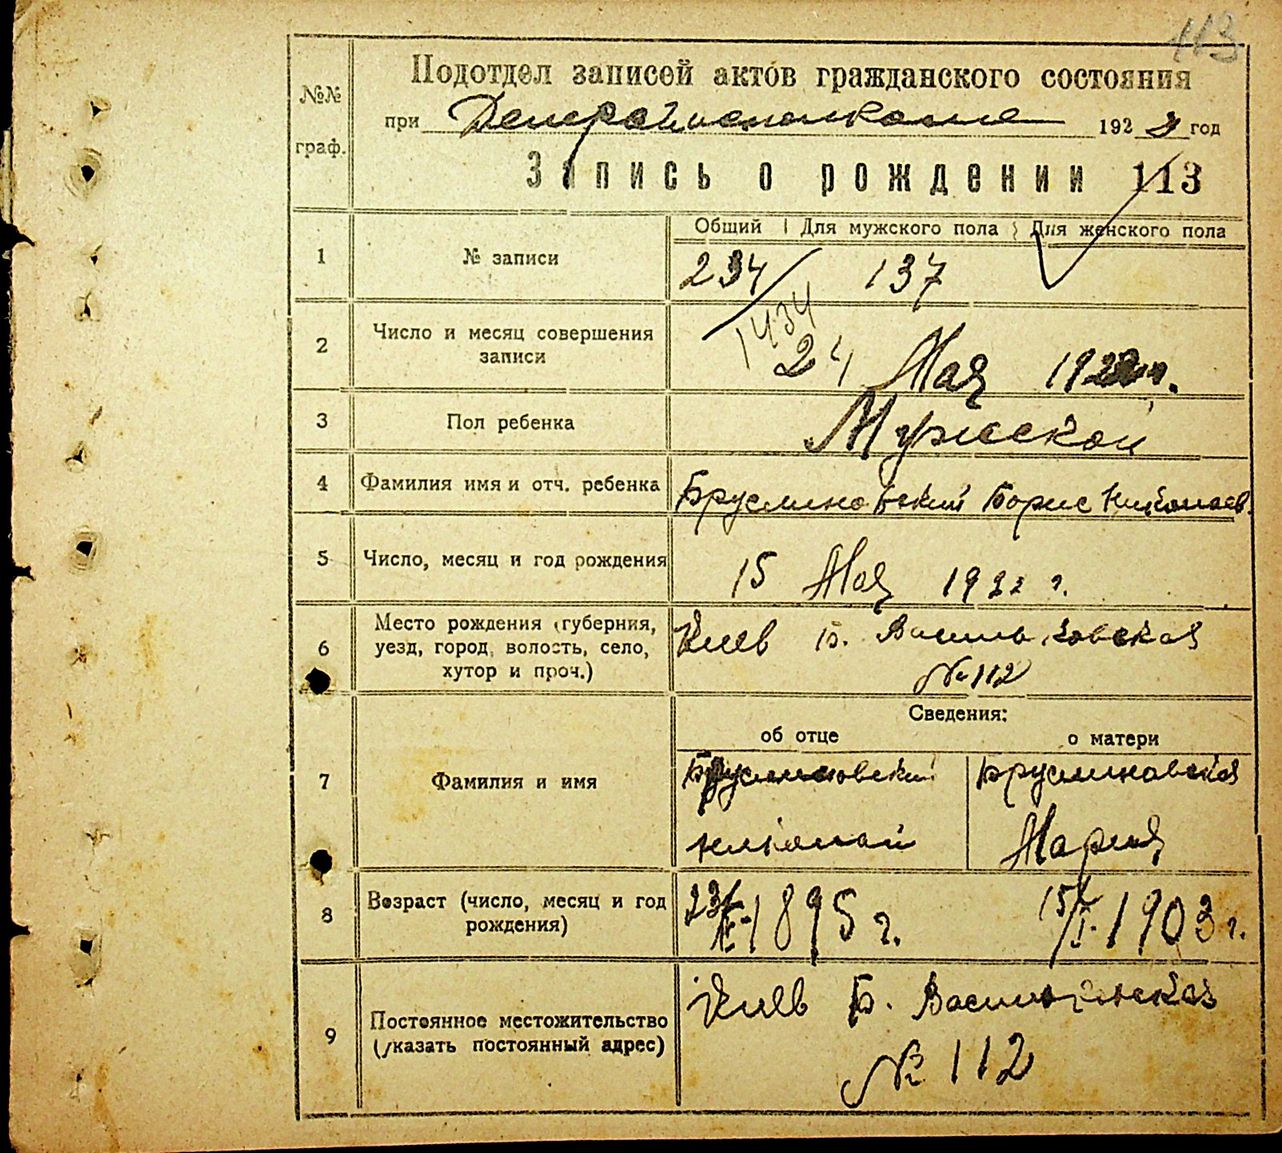 113
Подотдел записей актов гражданского состояния
№№ граф.
при Денрайисполкоме 192 2 год
Запись о рождении 113
Общий Для мужского пола Для женского пола
1 № записи 234 137
1434
2 Число и месяц совершения записи 24 Мая 1922 г.
3 Пол ребенка Мужской
4 Фамилия имя и отч. ребенка Брусиловский Борис Николаев.
5 Число, месяц и год рождения 15 Мая 1922 г.
6 Место рождения (губерния, уезд, город, волость, село, хутор и проч.) Киев Б. Васильковская
№ 112
Сведения:
об отце о матери
7 Фамилия и имя Брусиловский Брусиловская
Николай Мария
8 Возраст (число, месяц и год рождения) 1895 г. 15/I 1903 г.
9 Постоянное местожительство (указать постоянный адрес) Киев Б. Васильковская
№ 112